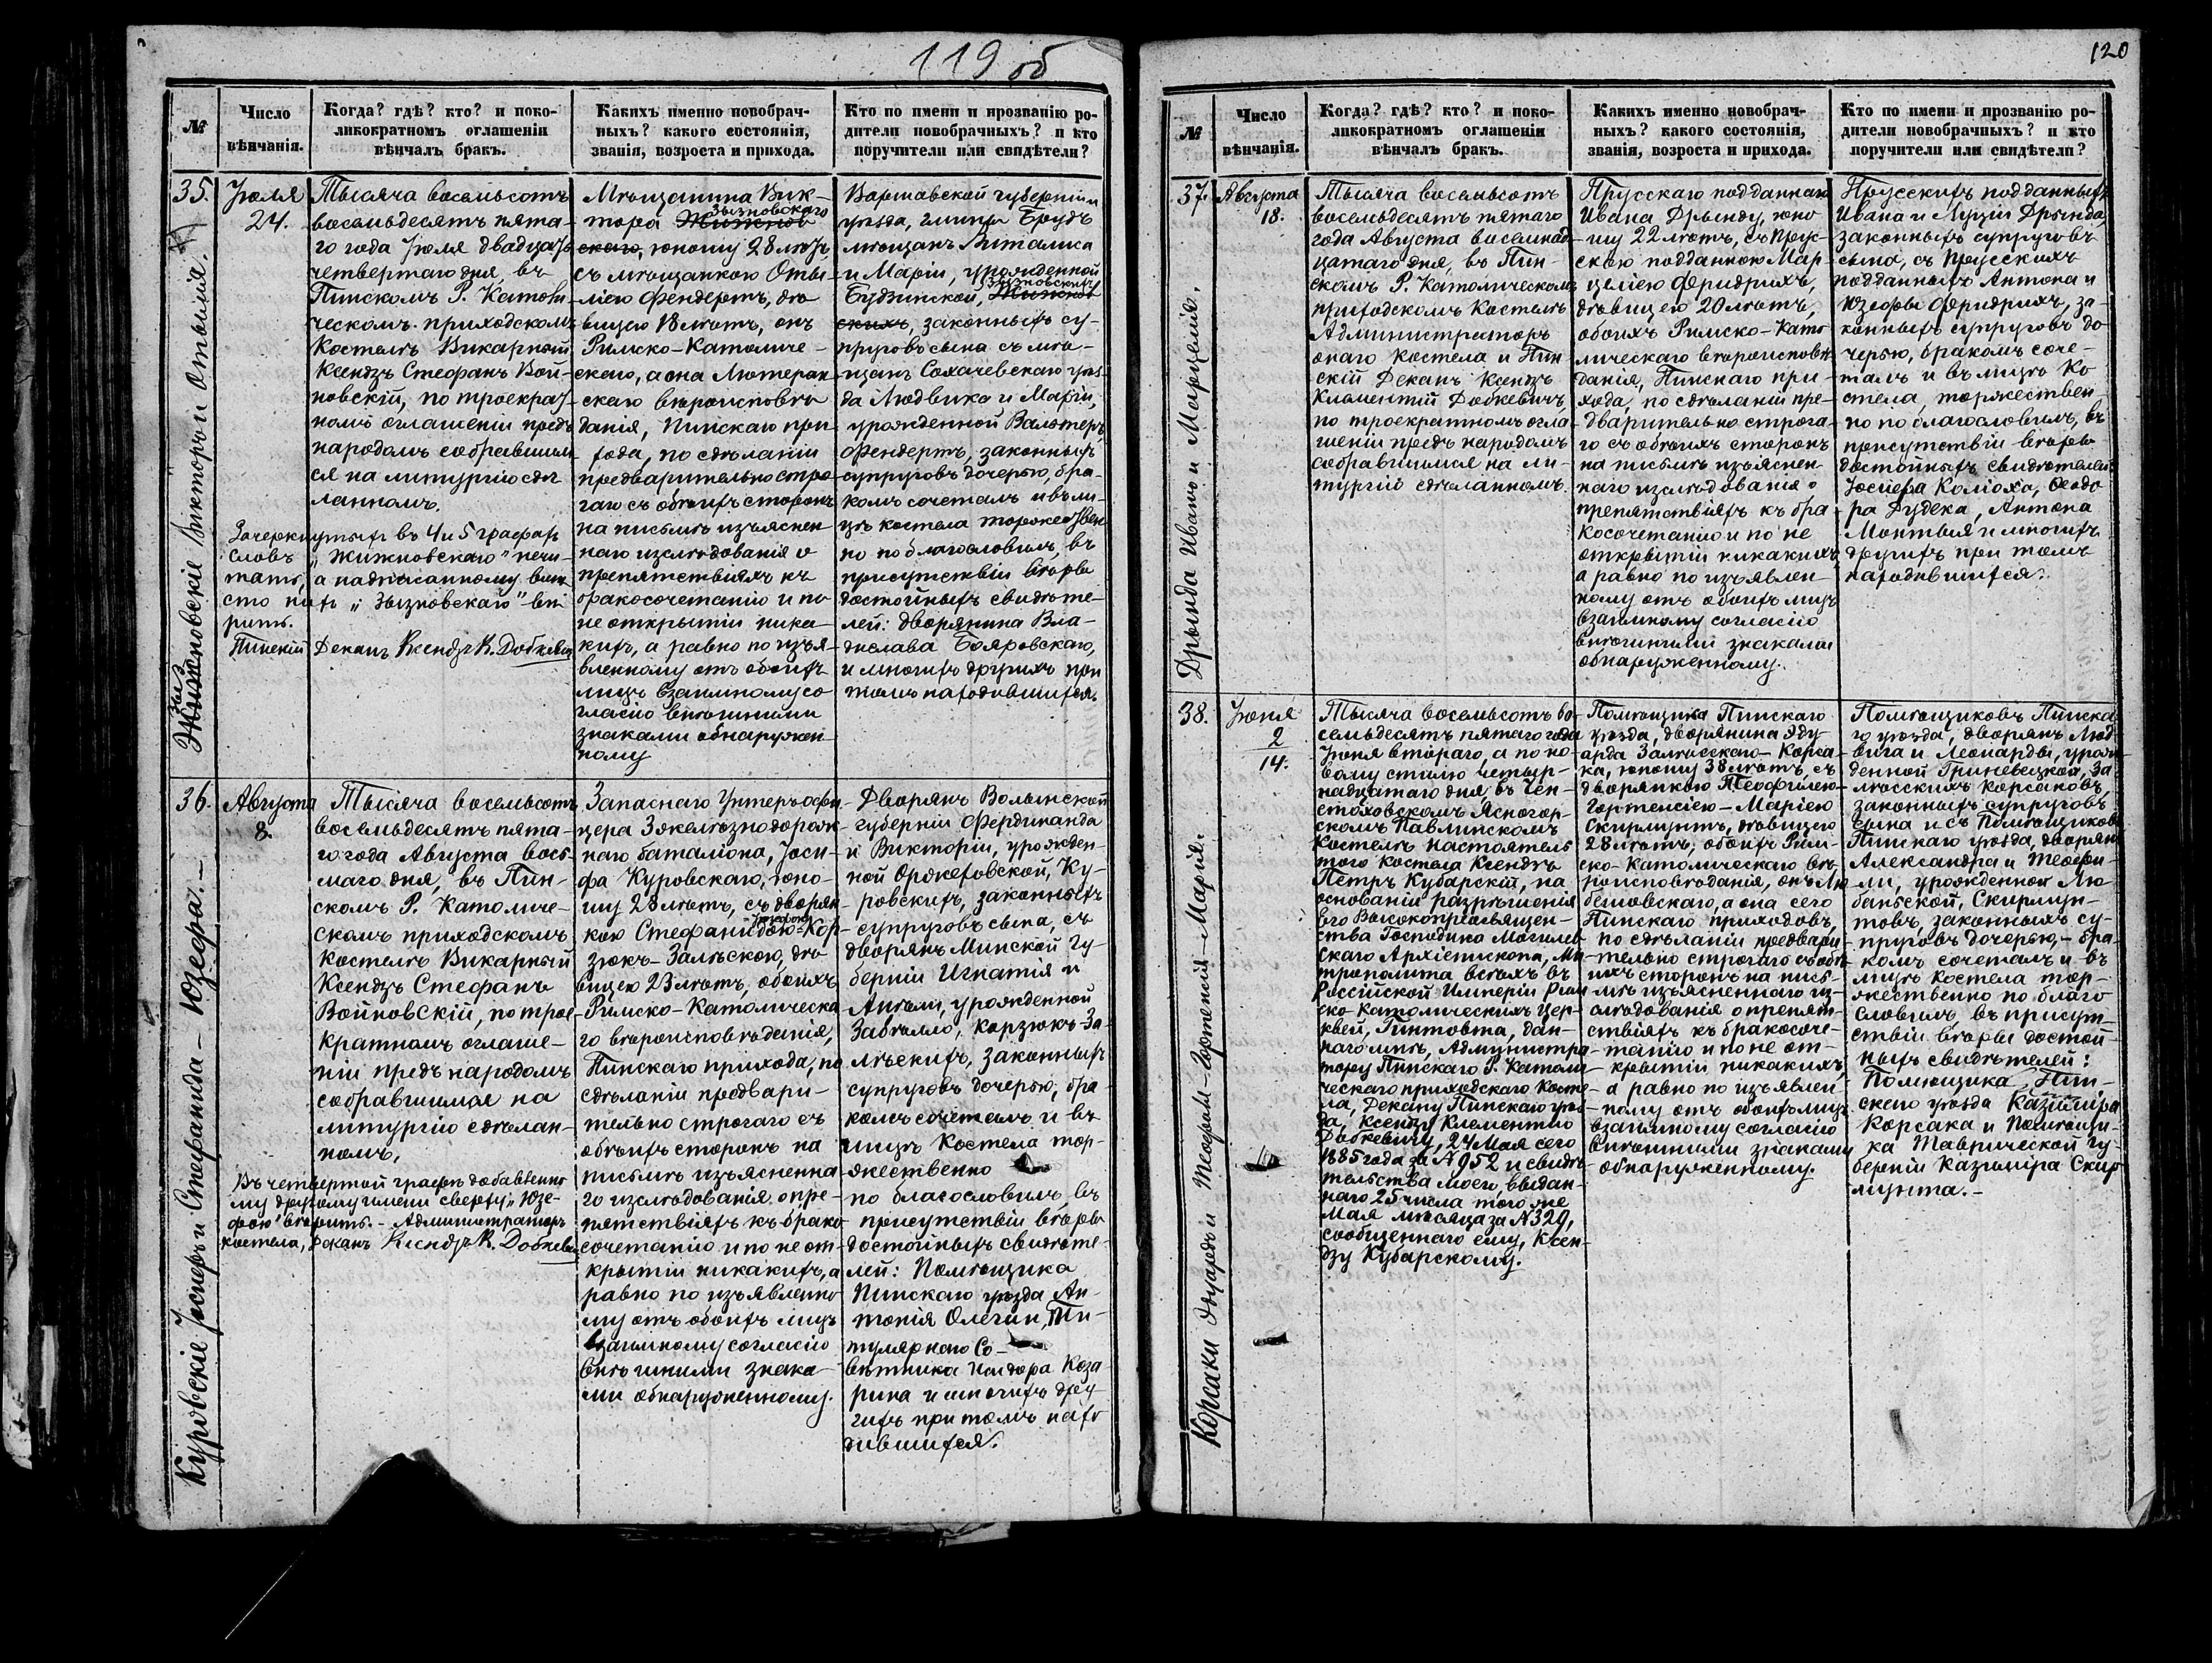 119 об
№
Число
вѣнчанія.
Когда? гдѣ? кто? и поко-
ликократномъ оглашеніи
вѣнчалъ бракъ.
Какихъ именно новобрач-
ныхъ? какого состоянія,
званія, возроста и прихода.
Кто по имени и прозванію ро-
дители новобрачныхъ? и кто
поручители или свидѣтели?
35.
Зызновскіе Викторъ и Отылія.
Іюля
24.
Тысяча восемьсотъ
восемьдесятъ пята-
го года Іюля двадцать
четвертаго дня, въ
Пинскомъ Р. Католи-
ческомъ приходскомъ
Костелѣ Викарный
Ксендзъ Стефанъ Вой-
новскій, по троекрат-
номъ оглашеніи предъ
народомъ собравшим-
ся на литургію сдѣ-
ланномъ.
Зачеркнутыхъ въ 4 и 5 графахъ
словъ „Жижновскаго" не чи-
тать, а надписанному вмѣ-
сто ихъ „Зызновскаго" вѣ-
рить.
Пинскій Деканъ Ксендзъ К. Добкевичъ
Мѣщанина Вик-
тора Зызновскаго
юношу 28 лѣтъ,
съ мѣщанкою Оты-
ліею Фендертъ, дѣ-
вицею 18 лѣтъ, онъ
Римско-Католиче-
скаго, а она Лютеран-
скаго вѣроисповѣ-
данія, Пинскаго при-
хода, по сдѣланіи
предварительно стро-
гаго съ обоихъ сторонъ
на письмѣ изъяснен-
наго изслѣдованія о
препятствіяхъ къ
бракосочетанію и по
не открытіи ника-
кихъ, а равно по изъя-
вленному отъ обоихъ
лицъ взаимному со-
гласію внѣшними
знаками обнаружен-
ному
Варшавской губерніи
уѣзда, гмины Брудъ
мѣщанъ Виталиса
и Маріи, урожденной
Будзинской, Зызновскихъ
законныхъ су-
пруговъ сына съ мѣ-
щанъ Сохачевскаго уѣз-
да Людвика и Маріи,
урожденной Вальтеръ,
Фендертъ, законныхъ
супруговъ дочерью, бра-
комъ сочеталъ и въ ли-
цѣ костела торжествен-
но поблагословилъ, въ
присутствіи вѣры
достойныхъ свидѣте-
лей: дворянина Вла-
дислава Бояровскаго,
и многихъ другихъ при
томъ находившихся.
36.
Куровскіе Іосифъ и Стефанида-Юзефа.-
Августа
8.
Тысяча восемьсотъ
восемьдесятъ пята-
го года Августа вось-
маго дня, въ Пин-
скомъ Р. Католиче-
скомъ приходскомъ
Костелѣ Викарный
Ксендзъ Стефанъ
Войновскій, по трое-
кратномъ оглаше-
ніи предъ народомъ
собравшимся на
литургію сдѣлан-
номъ.
Въ четвертой графѣ добавленно-
му другому имени сверху „Юзе-
фою" вѣрить.- Администраторъ
костела, Деканъ Ксендзъ К. Добкевичъ
Запаснаго Унтеръ офи-
цера 3 желѣзнодорож-
наго баталіона, Іоси-
фа Куровскаго, юно-
шу 28 лѣтъ, съ дворян-
кою Стефанидою-Юзефою Кор-
зюкъ-Залѣскою, дѣ-
вицею 23 лѣтъ, обоихъ
Римско-Католическа-
го вѣроисповѣданія,
Пинскаго прихода, по
сдѣланіи предвари-
тельно строгаго съ
обоихъ сторонъ на
письмѣ изъясненна-
го изслѣдованія о пре-
пятствіяхъ къ брако-
сочетанію и по не от-
крытіи никакихъ, а
равно по изъявленно-
му отъ обоихъ лицъ
взаимному согласію
внѣшними знака-
ми обнаруженному.
Дворянъ Волынской
губерніи Фердинанда
и Викторіи, урожден-
ной Оржеховской, Ку-
ровскихъ, законныхъ
супруговъ сына, съ
дворянъ Минской гу-
берніи Игнатія и
Анели, урожденной
Забѣлло, Корзюкъ-За-
лѣскихъ, законныхъ
супруговъ дочерью, бра-
комъ сочеталъ и въ
лицѣ Костела тор-
жественно
поблагословилъ въ
присутствіи вѣры
достойныхъ свидѣте-
лей: Помѣщика
Пинскаго уѣзда Ан-
тонія Олеши, Ти-
тулярнаго Со-
вѣтника Исидора Коза-
рина и многихъ дру-
гихъ при томъ нахо-
дившихся.
120
№
Число
вѣнчанія.
Когда? гдѣ? кто? и поко-
ликократномъ оглашеніи
вѣнчалъ бракъ.
Какихъ именно новобрач-
ныхъ? какого состоянія,
званія, возроста и прихода.
Кто по имени и прозванію ро-
дители новобрачныхъ? и кто
поручители или свидѣтели?
37.
Дрында Иванъ и Марцелія.
Августа
18.
Тысяча восемьсотъ
восемьдесятъ пятаго
года Августа восемнад-
цатаго дня, въ Пин-
скомъ Р. Католическомъ
приходскомъ Костелѣ
Администраторъ
онаго Костела и Пин-
скій Деканъ Ксендзъ
Климентій Добкевичъ,
по троекратномъ огла-
шеніи предъ народомъ
собравшимся на ли-
тургію сдѣланномъ.
Прусскаго подданнаго
Ивана Дрынду, юно-
шу 22 лѣтъ, съ Прус-
скою подданною Мар-
целіею Фридрихъ,
дѣвицею 20 лѣтъ,
обоихъ Римско-Като-
лическаго вѣроисповѣ-
данія, Пинскаго при-
хода, по сдѣланіи пре-
дварительно строга-
го съ обоихъ сторонъ
на письмѣ изъяснен-
наго изслѣдованія о
препятствіяхъ къ бра-
косочетанію и по не
открытіи никакихъ,
а равно по изъявлен-
ному отъ обоихъ лицъ
взаимному согласію
внѣшними знаками
обнаруженному.
Прусскихъ подданныхъ
Ивана и Луціи Дрында,
законныхъ супруговъ
сына, съ Прусскихъ
подданныхъ Антона и
Юзефы Фридрихъ, за-
конныхъ супруговъ до-
черью, бракомъ соче-
талъ и въ лицѣ Ко-
стела, торжествен-
но поблагословилъ, въ
присутствіи вѣры
достойныхъ свидѣтелей
Іосифа Коліоха, Ѳеодо-
ра Дудека, Антона
Монтвыя и многихъ
другихъ при томъ
находившихся.
38.
Корсаки Эдуардъ и Теофиля-Гортензія-Марія.
Іюня
2
14.
Тысяча восемьсотъ во-
семьдесятъ пятаго года
Іюня втораго, а по но-
вому стилю четыр-
надцатаго дня, въ Чен-
стоховскомъ Ясногор-
скомъ Павлинскомъ
Костелѣ настоятель
того Костела Ксендзъ
Петръ Кубарскій, на
основаніи разрѣшенія
Его Высокопреосвящен-
ства Господина Могилев-
скаго Архіепископа, Ми-
трополита всѣхъ въ
Россійской Имперіи Рим-
ско-Католическихъ цер-
квей, Гинтовта, дан-
наго мнѣ, Администра-
тору Пинскаго Р. Католи-
ческаго приходскаго Косте-
ла, Декану Пинскаго уѣз-
да, Ксендзу Клементію
Добкевичу, 24 Мая сего
1885 года за № 952 и свидѣ-
тельства моего, выдан-
наго 25 числа того же
Мая мѣсяца за № 329,
сообщеннаго ему, Ксен-
дзу Кубарскому.
Помѣщика Пинскаго
уѣзда, дворянина Эду-
арда Залѣсскаго-Корса-
ка, юношу 38 лѣтъ, съ
дворянкою Теофилею-
Гортенсіею-Маріею
Скирмунтъ, дѣвицею
28 лѣтъ, обоихъ Рим-
ско-Католическаго вѣ-
роисповѣданія, онъ Лю-
бешовскаго, а она сего
Пинскаго приходовъ,
по сдѣланіи предвари-
тельно строгаго съ обо-
ихъ сторонъ на пись-
мѣ изъясненнаго из-
слѣдованія о препят-
ствіяхъ къ бракосоче-
танію и по не от-
крытіи никакихъ,
а равно по изъявлен-
ному отъ обоихъ лицъ
взаимному согласію
внѣшними знаками
обнаруженному.
Помѣщиковъ Пинска-
го уѣзда, дворянъ Люд-
вига и Леонарды, урож-
денной Гриневецкой, За-
лѣсскихъ Корсаковъ,
законныхъ супруговъ
сына и съ Помѣщиковъ
Пинскаго уѣзда, дворянъ
Александра и Теофи-
ли, урожденной Лю-
баньской, Скирмун-
товъ, законныхъ су-
пруговъ дочерью,- бра-
комъ сочеталъ и въ
лицѣ Костела тор-
жественно поблаго-
словилъ, въ присут-
ствіи вѣры достой-
ныхъ свидѣтелей:
Помѣщика Пин-
скаго уѣзда Казиміра
Корсака и Помѣщи-
ка Таврической гу-
берніи Казиміра Скир-
мунта.-